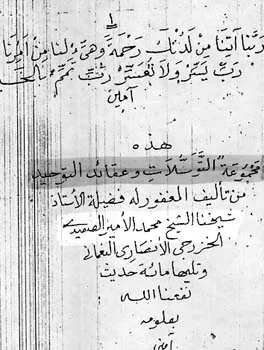 ربنا آتنا من لدنك رحمة وهيء لنا من أمرنا
رب يسر ولا تعسر رب تمم بالخـ
آمين
هذه
مجموعة التوسلات وعقائد التوحيد
من تأليف المغفور له فضيلة الأستاذ
شيخنا الشيخ محمد الأمير
الخزرجي الأنصاري النعماني
وتليها مائة حديث
نفعنا الله
بعلومه
آمين